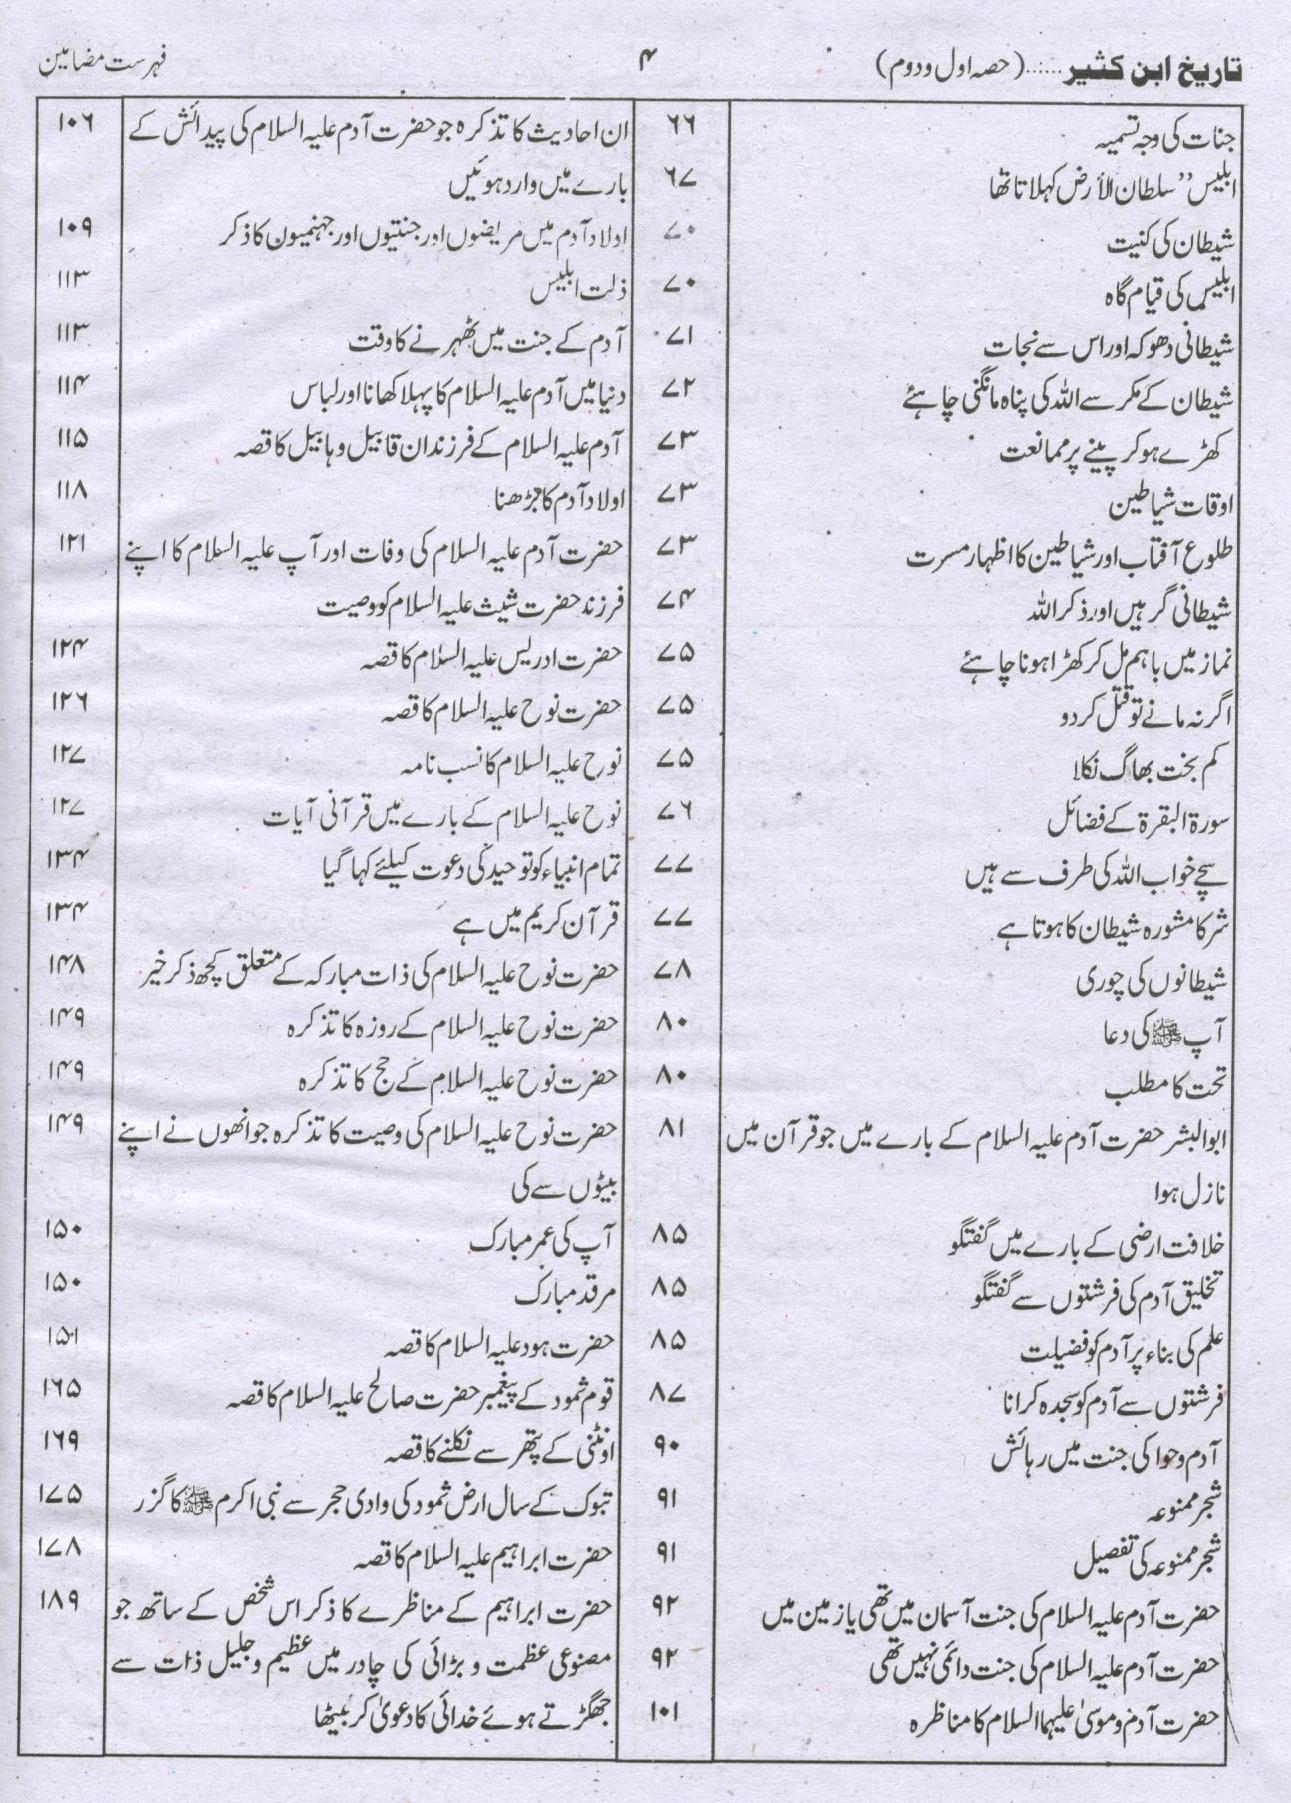 تاریخ ابن کثیر......(حصہ اول ودوم)
۴
فہرست مضامین
جنات کی وجہ تسمیہ ۶۶
ابلیس ”سلطان الأرض کہلاتا تھا ۶۷
شیطان کی کنیت ۷۰
ابلیس کی قیام گاہ ۷۰
شیطانی دھوکہ اور اس سے نجات ۷۱
شیطان کے مکر سے اللہ کی پناہ مانگنی چاہئے ۷۲
کھڑے ہو کر پینے پر ممانعت ۷۳
اوقات شیاطین ۷۳
طلوع آفتاب اور شیاطین کا اظہار مسرت ۷۳
شیطانی گرہیں اور ذکر اللہ ۷۴
نماز میں باہم مل کر کھڑا ہونا چاہئے ۷۵
اگر نہ مانے تو قتل کر دو ۷۵
کم بخت بھاگ نکلا ۷۵
سورۃ البقرۃ کے فضائل ۷۶
سچے خواب اللہ کی طرف سے ہیں ۷۷
شر کا مشورہ شیطان کا ہوتا ہے ۷۷
شیطانوں کی چوری ۷۸
آپ ﷺ کی دعا ۸۰
تحت کا مطلب ۸۰
ابوالبشر حضرت آدم علیہ السلام کے بارے میں جو قرآن میں ۸۱
نازل ہوا
خلافت ارضی کے بارے میں گفتگو ۸۵
تخلیق آدم کی فرشتوں سے گفتگو ۸۵
علم کی بناء پر آدم کو فضیلت ۸۵
فرشتوں سے آدم کو سجدہ کرانا ۸۷
آدم وحوا کی جنت میں رہائش ۹۰
شجر ممنوعہ ۹۱
شجر ممنوعہ کی تفصیل ۹۱
حضرت آدم علیہ السلام کی جنت آسمان میں تھی یا زمین میں ۹۲
حضرت آدم علیہ السلام کی جنت دائمی نہیں تھی ۹۲
حضرت آدم وموسیٰ علیہما السلام کا مناظرہ ۱۰۱
ان احادیث کا تذکرہ جو حضرت آدم علیہ السلام کی پیدائش کے ۱۰۶
بارے میں وارد ہوئیں
اولاد آدم میں مریضوں اور جنتیوں اور جہنمیون کا ذکر ۱۰۹
ذلت ابلیس ۱۱۳
آدم کے جنت میں ٹھہرنے کا وقت ۱۱۳
دنیا میں آدم علیہ السلام کا پہلا کھانا اور لباس ۱۱۴
آدم علیہ السلام کے فرزندان قابیل وہابیل کا قصہ ۱۱۵
اولاد آدم کا بڑھنا ۱۱۸
حضرت آدم علیہ السلام کی وفات اور آپ علیہ السلام کا اپنے ۱۲۱
فرزند حضرت شیث علیہ السلام کو وصیت
حضرت ادریس علیہ السلام کا قصہ ۱۲۴
حضرت نوح علیہ السلام کا قصہ ۱۲۶
نوح علیہ السلام کا نسب نامہ ۱۲۷
نوح علیہ السلام کے بارے میں قرآنی آیات ۱۲۷
تمام انبیاء کو توحید کی دعوت کیلئے کہا گیا ۱۳۴
قرآن کریم میں ہے ۱۳۴
حضرت نوح علیہ السلام کی ذات مبارکہ کے متعلق کچھ ذکر خیر ۱۴۸
حضرت نوح علیہ السلام کے روزہ کا تذکرہ ۱۴۹
حضرت نوح علیہ السلام کے حج کا تذکرہ ۱۴۹
حضرت نوح علیہ السلام کی وصیت کا تذکرہ جو انھوں نے اپنے ۱۴۹
بیٹوں سے کی
آپ کی عمر مبارک ۱۵۰
مرقد مبارک ۱۵۰
حضرت ہود علیہ السلام کا قصہ ۱۵۱
قوم ثمود کے پیغمبر حضرت صالح علیہ السلام کا قصہ ۱۶۵
اونٹنی کے پتھر سے نکلنے کا قصہ ۱۶۹
تبوک کے سال ارض ثمود کی وادی حجر سے نبی اکرم ﷺ کا گزر ۱۷۵
حضرت ابراہیم علیہ السلام کا قصہ ۱۷۸
حضرت ابراہیم کے مناظرے کا ذکر اس شخص کے ساتھ جو ۱۸۹
مصنوعی عظمت و بڑائی کی چادر میں عظیم و جلیل ذات سے
جھگڑتے ہوئے خدائی کا دعویٰ کر بیٹھا